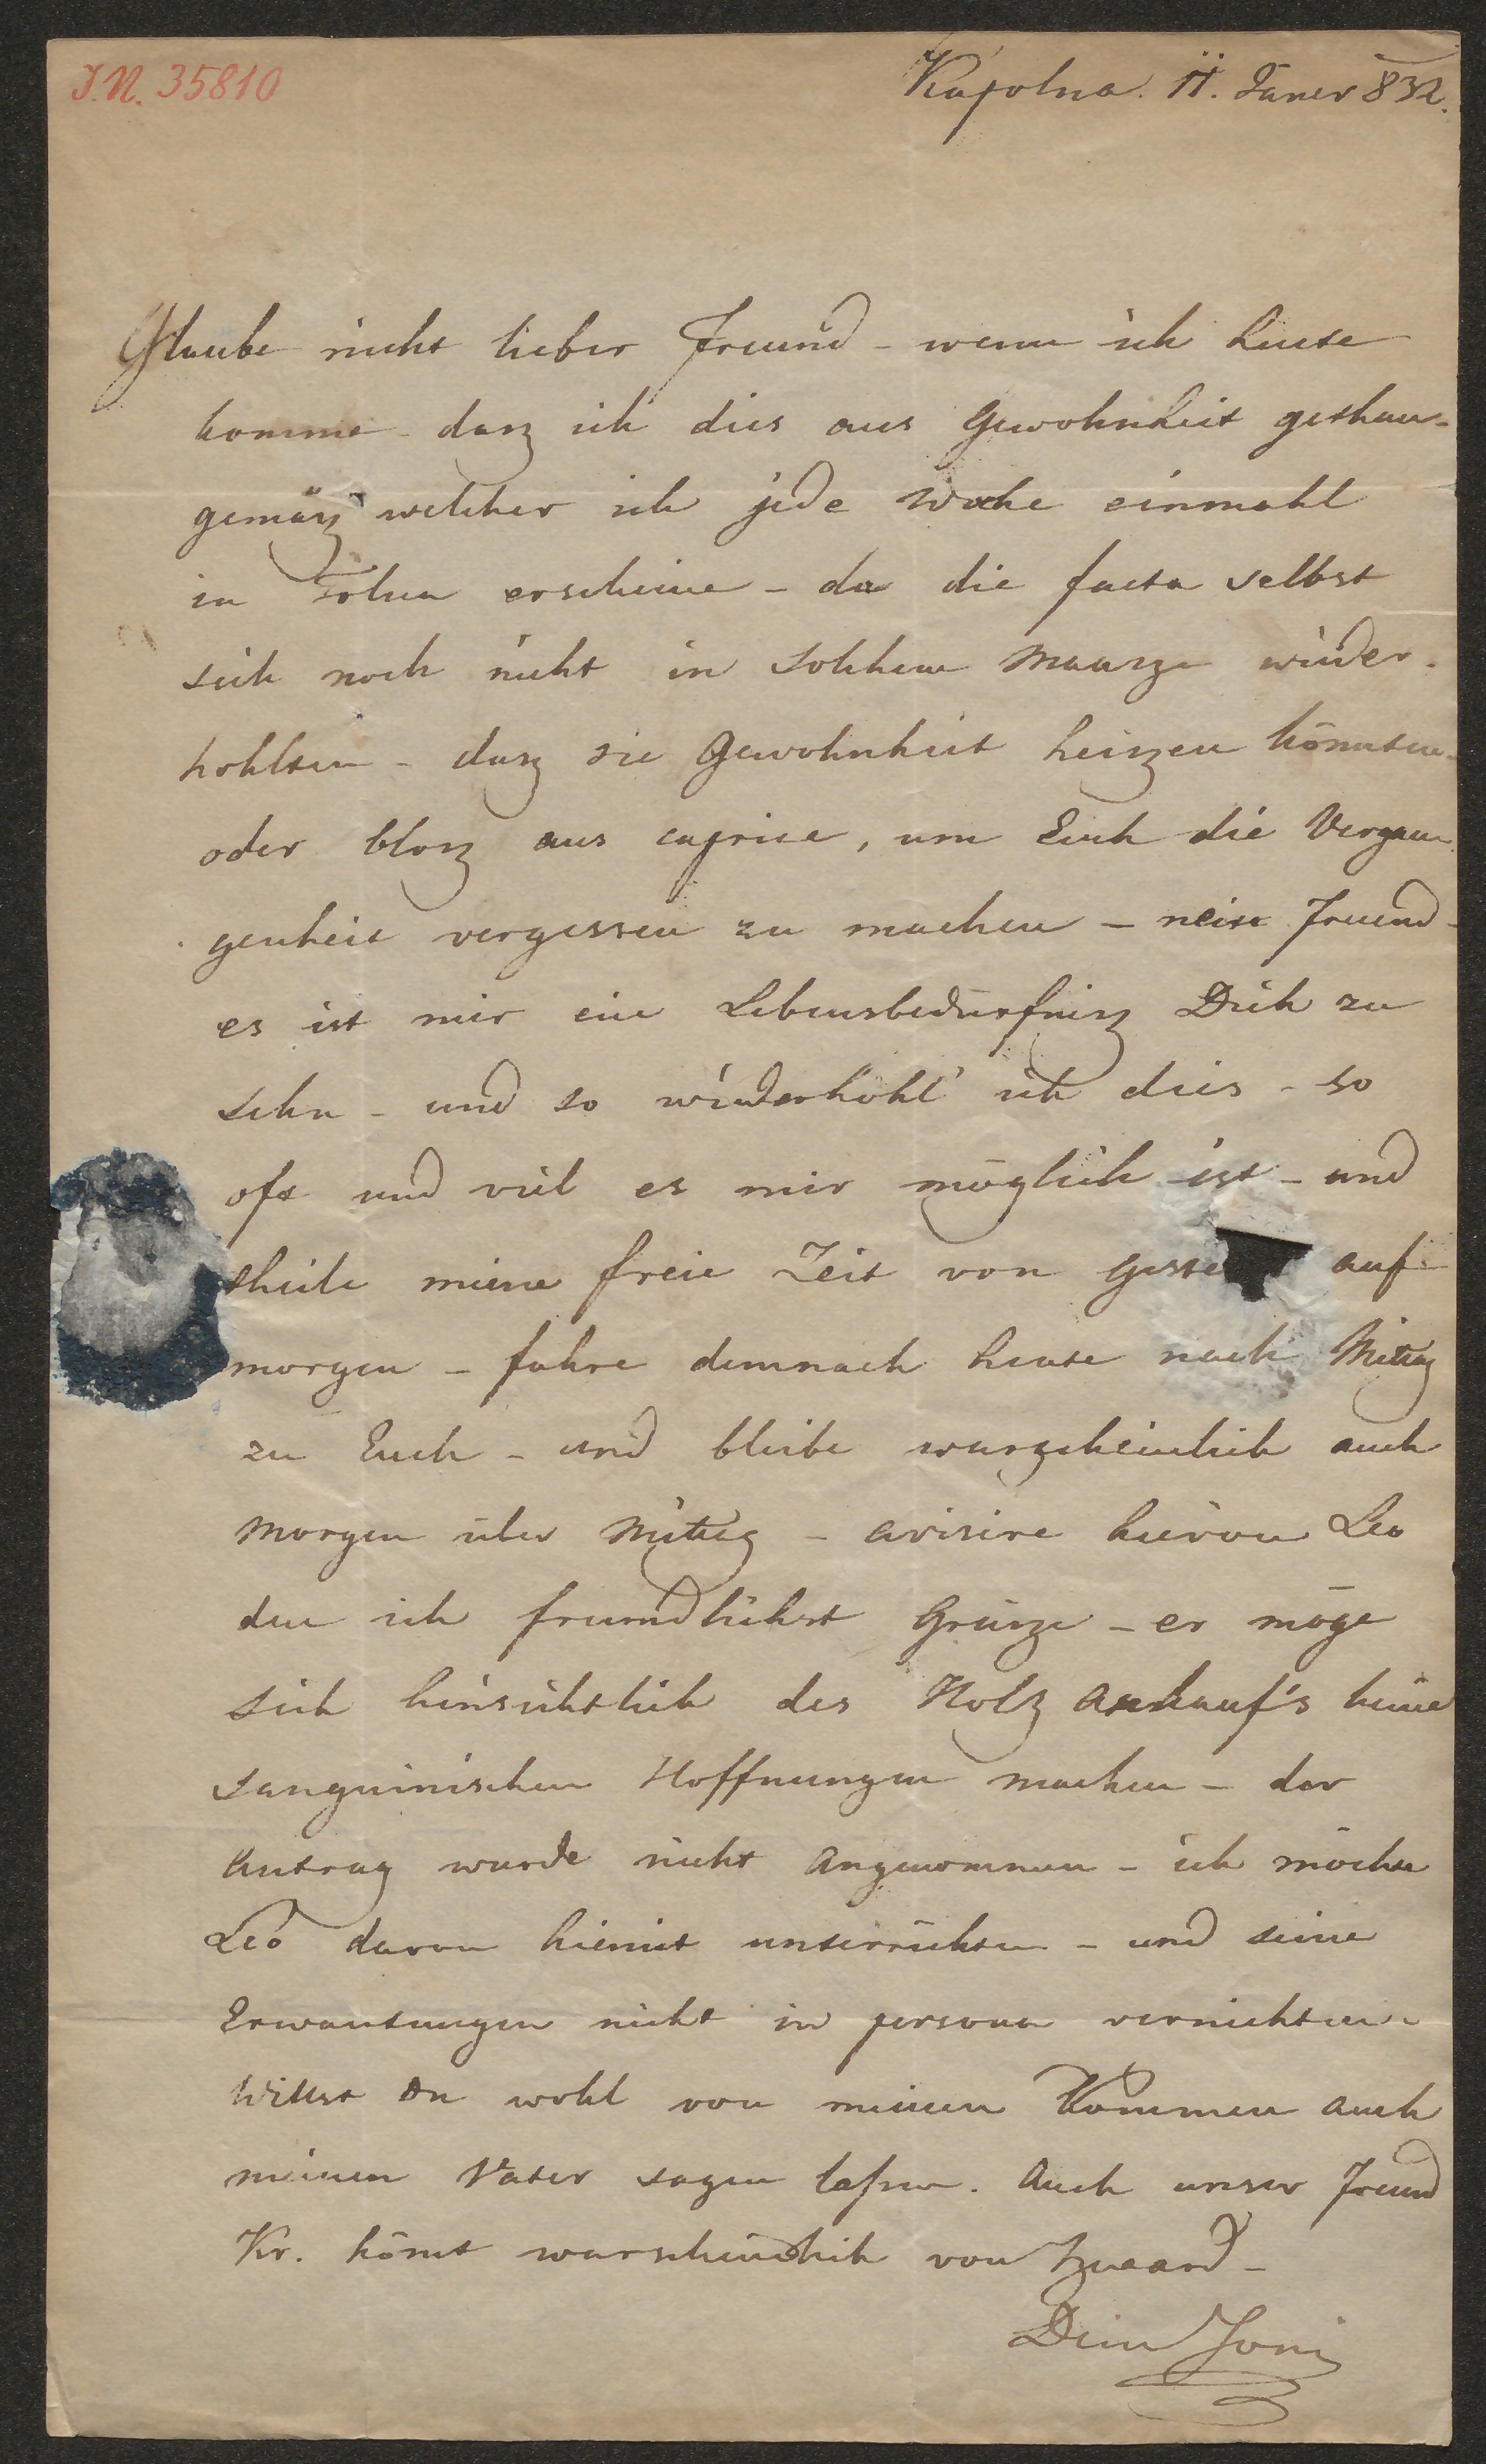 J.N. 35810
Kapolna. 11. Jäner 832.
Glaube nicht lieber Freund - wenn ich heute
komme - dasz ich dies aus Gewohnheit gethan -
gemäsz welcher ich jede Woche einmahl
in Tolna erscheine - da die facta selbst
sich noch nicht in solchem Maasze wieder-
hohlten - dasz sie Gewohnheit heiszen könnten -
oder blosz aus caprice, um Euch die Vergan-
genheit vergessen zu machen - nein Freund -
es ist mir ein Lebensbedürfnisz Dich zu
sehn - und so wiederhohl' ich dies - so
oft und viel es mir möglich ist - und
theile meine freie Zeit von auf
morgen - fahre demnach heute nach Mittag
zu Euch - und bleibe warscheinlich auch
Morgen über Mittag - avisire hievon Leo
den ich freundlichst Grüsze - er möge
sich hinsichtlich des Holz Ankauf's keine
sanguinischen Hoffnungen machen - der
Antrag wurde nicht Angenommen - ich möchte
Leo davon hiemit unterrichten - und seine
Erwartungen nicht in persona vernichten.
Willst Du wohl von meinen Kommen auch
meinen Vater sagen laßen. Auch unser Freund
Kr. kömt warscheindlich von -
Dein Joni